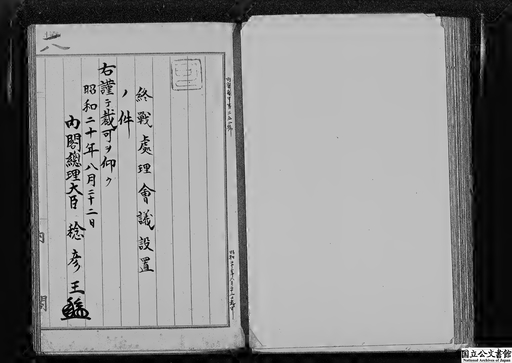 終戰處理會議設置
ノ件
右謹テ裁可ヲ仰ク
昭和二十年八月二十二日
內閣總理大臣 稔彥王
八
內 閣
国立公文書館
National Archives of Japan